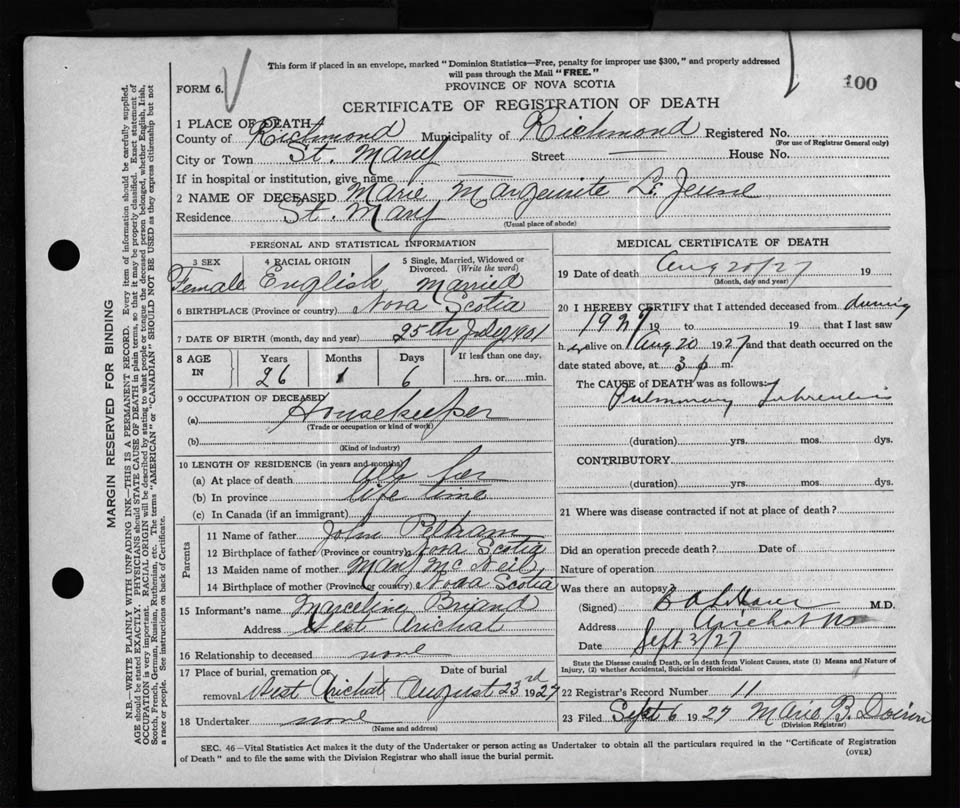 This form if placed in an envelope, marked "Dominion Statistics—Free, penalty for improper use $300," and properly addressed
will pass through the Mail "FREE."
FORM 6.
PROVINCE OF NOVA SCOTIA
100
CERTIFICATE OF REGISTRATION OF DEATH
1 PLACE OF DEATH
County of Richmond Municipality of Richmond Registered No.
(For use of Registrar General only)
City or Town St. Mary Street — House No.
If in hospital or institution, give name —
2 NAME OF DECEASED Marie Marguerite Le Jeune
Residence St. Mary
(Usual place of abode)
PERSONAL AND STATISTICAL INFORMATION
3 SEX 4 RACIAL ORIGIN 5 Single, Married, Widowed or
Divorced. (Write the word)
Female English Married
6 BIRTHPLACE (Province or country) Nova Scotia
7 DATE OF BIRTH (month, day and year) 25th July 1901
8 AGE IN Years Months Days If less than one day.
26 1 6 hrs. or min.
9 OCCUPATION OF DECEASED
(a) Housekeeper
(Trade or occupation or kind of work)
(b)
(Kind of industry)
10 LENGTH OF RESIDENCE (in years and months)
(a) At place of death
(b) In province life time
(c) In Canada (if an immigrant)
Parents
11 Name of father John
12 Birthplace of father (Province or country) Nova Scotia
13 Maiden name of mother Mary McNeil
14 Birthplace of mother (Province or country) Nova Scotia
15 Informant's name Marceline Briand
Address West Arichat
16 Relationship to deceased none
17 Place of burial, cremation or Date of burial
removal West Arichat August 23rd 1927
18 Undertaker none
(Name and address)
MEDICAL CERTIFICATE OF DEATH
19 Date of death Aug 20/27 19
(Month, day and year)
20 I HEREBY CERTIFY that I attended deceased from during
1927 19 to 19 that I last saw
her alive on Aug 20 1927 and that death occurred on the
date stated above, at 3 p m.
The CAUSE of DEATH was as follows:
Pulmonary Tuberculosis
(duration) yrs. mos. dys.
CONTRIBUTORY.
(duration) yrs. mos. dys.
21 Where was disease contracted if not at place of death?
Did an operation precede death? Date of
Nature of operation
Was there an autopsy?
(Signed) M.D.
Address Arichat NS
Date Sept 3/27
State the Disease causing Death, or in death from Violent Causes, state (1) Means and Nature of
Injury, (2) whether Accidental, Suicidal or Homicidal.
22 Registrar's Record Number 11
23 Filed Sept 6 1927 Marie B. Doiron
(Division Registrar)
SEC. 46—Vital Statistics Act makes it the duty of the Undertaker or person acting as Undertaker to obtain all the particulars required in the "Certificate of Registration
of Death" and to file the same with the Division Registrar who shall issue the burial permit.
(OVER)
MARGIN RESERVED FOR BINDING
N.B.—WRITE PLAINLY WITH UNFADING INK—THIS IS A PERMANENT RECORD. Every item of information should be carefully supplied.
AGE should be stated EXACTLY. PHYSICIANS should STATE CAUSE OF DEATH in plain terms, so that it may be properly classified. Exact statement of
OCCUPATION is very important. RACIAL ORIGIN will be described by stating to what people or tongue the deceased person belonged, whether English, Irish,
Scotch, French, German, Russian, Ruthenian, etc. The terms "AMERICAN" or "CANADIAN" SHOULD NOT BE USED as they express citizenship but not
a race or people. See instructions on back of Certificate.